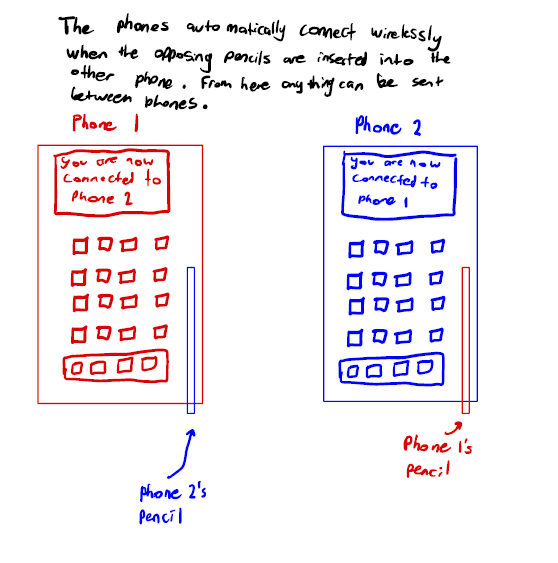 The phones automatically connect wirelessly
when the opposing pencils are inserted into the
other phone. From here anything can be sent
between phones.
Phone 1
Phone 2
You are now
connected to
Phone 2
You are now
connected to
phone 1
Phone 1's
pencil
phone 2's
pencil